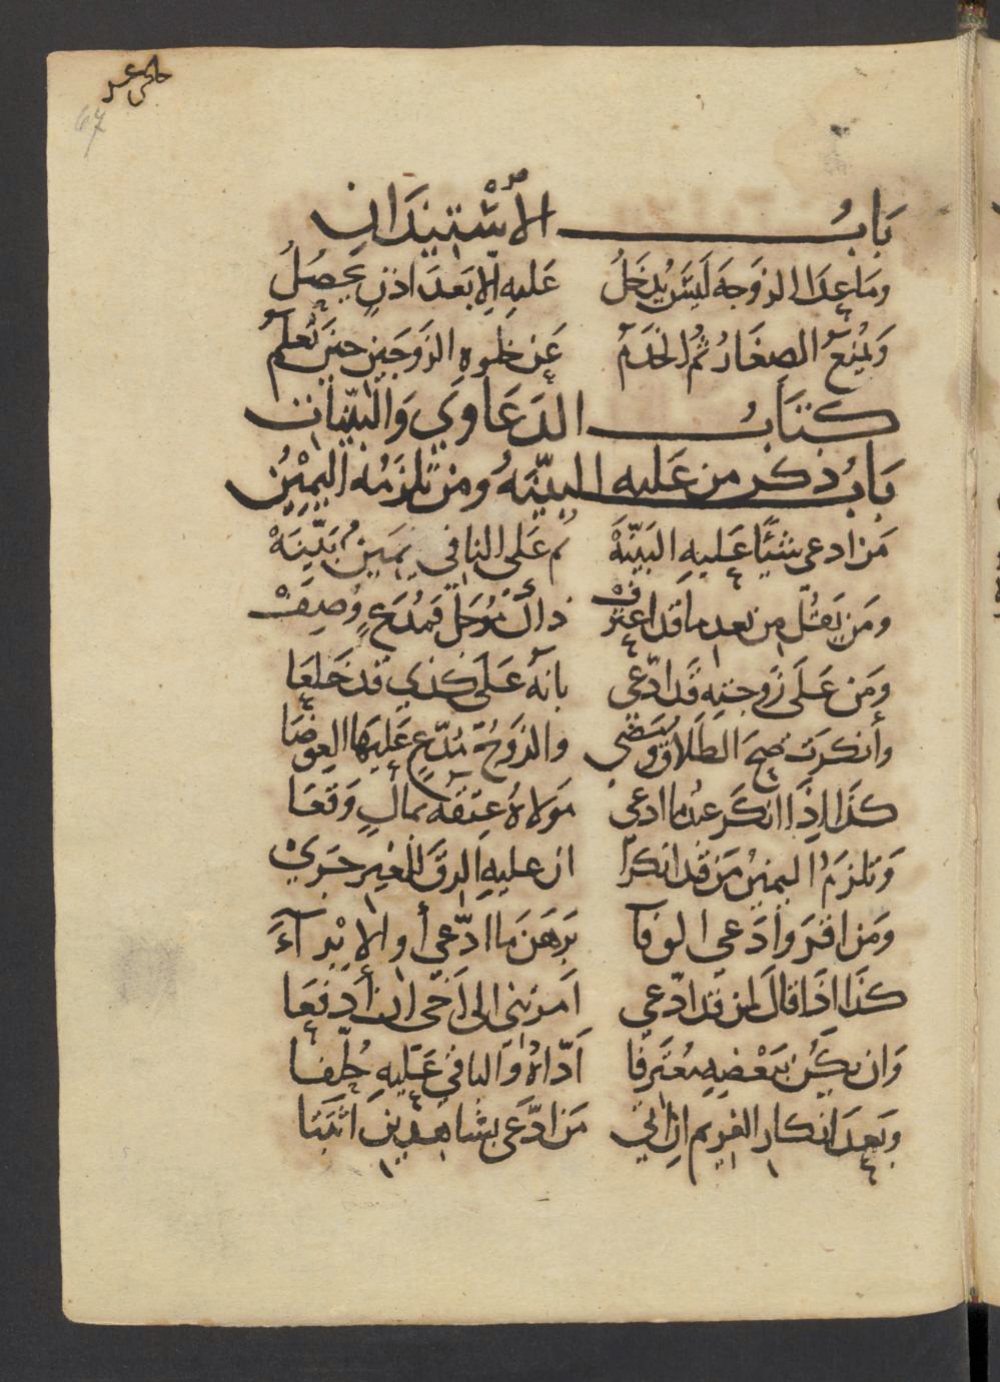 67
بَابُ الأسْتيذَانِ
ومَا عدَا الزوَجَه لَيسَ يُدخَلُ عَليهِ إلا بَعدَ اذنٍ يَحصُلُ
وَيُمنعُ الصغَارُ ثُمُ الخدَمُ عَن خلوهِ الزَوجَينِ حينَ تُعلمُ
كتَابُ الدَعَاوي وَالبَيّنات
بَابُ ذكر من عَليه البيّنهُ ومن تلزمُه اليَمِيْنُ
مَن ادعى شيًا عَليهِ البَيّنَهْ ثم عَلى النافي يَمينٌ بَيّنَهْ
ومَن يَقُل من بَعدِ ما قد اعترفْ ذاك مُوَجل فمُدَعٍ وُصِفْ
ومَن عَلَى زَوجتهِ قَد ادّعى بانهُ عَلَى كذي قد خَلعَا
وأنكرَت صحَ الطَلاق ومَضى والزوجُ مُدّعٍ عَليهَا العِوضَا
كذَا إذَا انكرَ عبدُ ما ادعى مَولاهُ عِتقَه بمالٍ وَقعَا
وَتلزَمُ اليمينُ مَن قد انكرَا ان عليهِ الحقَ للغيرِ جَرَي
ومَن اقرَ وادَعى الوفآ بَرهَنَ ما ادّعى أو الإبْرآءَ
كذَا اذَا قالَ لمن قد ادّعى امرتني إلى اخي ان أدفعَا
وَان يكُن ببَعْضِهِ مُعتَرفا أدّاهُ والباقي عَليهِ حُلّفا
وبَعدَ انكارِ الغريمِ إن اتى مَن ادّعَى بشاهِدينِ اثبَتَا